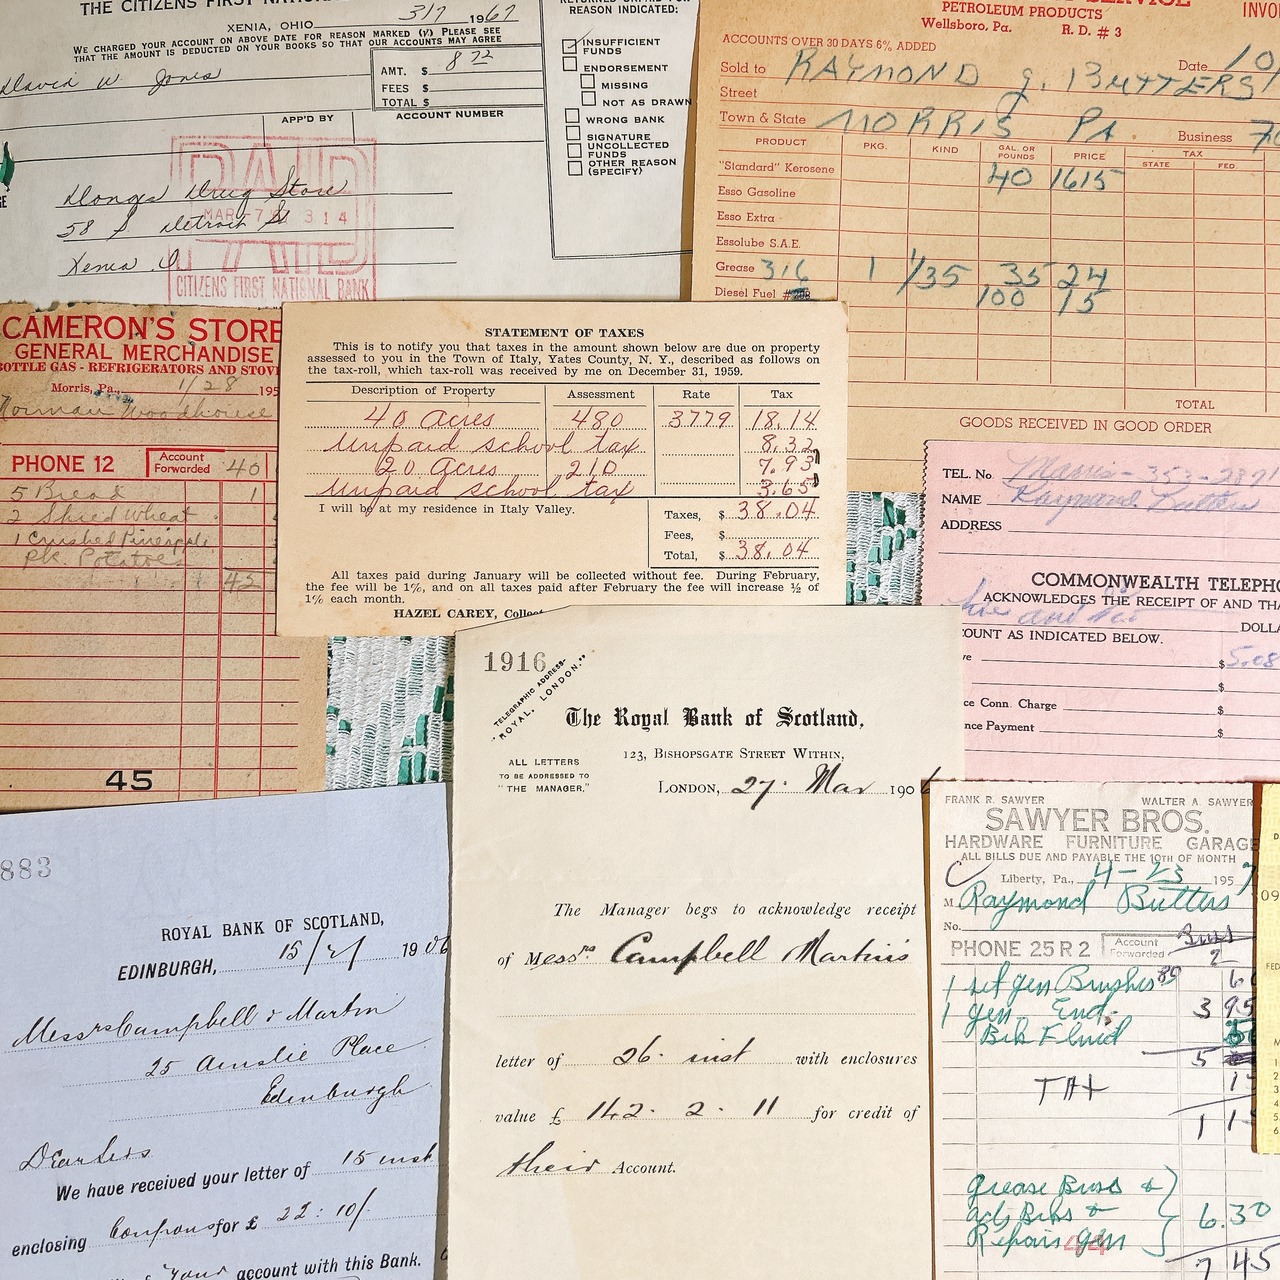 THE CITIZENS FIRST
XENIA, OHIO 3/7 1967
WE CHARGED YOUR ACCOUNT ON ABOVE DATE FOR REASON MARKED (√) PLEASE SEE
THAT THE AMOUNT IS DEDUCTED ON YOUR BOOKS SO THAT OUR ACCOUNTS MAY AGREE
David W Jones
AMT. $ 8 72
FEES $
TOTAL $
APP'D BY
ACCOUNT NUMBER
PAID
MAR-7 314
CITIZENS FIRST NATIONAL BANK
Donges Drug Store
58 S. Detroit St
Xenia O.
REASON INDICATED:
INSUFFICIENT
FUNDS
ENDORSEMENT
MISSING
NOT AS DRAWN
WRONG BANK
SIGNATURE
UNCOLLECTED
FUNDS
OTHER REASON
(SPECIFY)
SERVICE
INVO
PETROLEUM PRODUCTS
Wellsboro, Pa. R. D. # 3
ACCOUNTS OVER 30 DAYS 6% ADDED
Sold to RAYMOND J. BUTTERS
Date 10/
Street
Town & State MORRIS PA.
Business
PRODUCT PKG. KIND GAL. OR POUNDS PRICE TAX
STATE FED.
"Standard" Kerosene 40 1615
Esso Gasoline
Esso Extra
Essolube S.A.E.
Grease 316 1 1/35 35 24
Diesel Fuel 100 15
TOTAL
GOODS RECEIVED IN GOOD ORDER
CAMERON'S STORE
GENERAL MERCHANDISE
BOTTLE GAS - REFRIGERATORS AND STOV
Morris, Pa., 1/28 195
Norman Woodhouse
PHONE 12 Account Forwarded 40
5 Bread 1
2 Shred Wheat
1 Crushed Pineapple
pk Potatoes
42
45
STATEMENT OF TAXES
This is to notify you that taxes in the amount shown below are due on property
assessed to you in the Town of Italy, Yates County, N. Y., described as follows on
the tax-roll, which tax-roll was received by me on December 31, 1959.
Description of Property Assessment Rate Tax
40 Acres 480 3779 18.14
Unpaid school tax 8.32
20 Acres 210 7.93
Unpaid school tax 3.65
I will be at my residence in Italy Valley.
Taxes, $ 38.04
Fees, $
Total, $ 38.04
All taxes paid during January will be collected without fee. During February,
the fee will be 1%, and on all taxes paid after February the fee will increase ½ of
1% each month.
HAZEL CAREY, Collec
TEL. No Morris - 353-2891
NAME Raymond Butters
ADDRESS
COMMONWEALTH TELEPHO
ACKNOWLEDGES THE RECEIPT OF AND THA
five and
DOLLA
OUNT AS INDICATED BELOW.
$ 5.08
$
ce Conn. Charge $
nce Payment $
1916
TELEGRAPHIC ADDRESS-
"ROYAL, LONDON."
The Royal Bank of Scotland,
123, BISHOPSGATE STREET WITHIN,
ALL LETTERS
TO BE ADDRESSED TO
"THE MANAGER."
LONDON, 27. Mar 1906
The Manager begs to acknowledge receipt
of Messrs Campbell Martin's
letter of 26. inst with enclosures
value £ 142. 2. 11 for credit of
their Account.
883
ROYAL BANK OF SCOTLAND,
EDINBURGH, 15/2/ 1906
Messrs Campbell & Martin
25 Ainslie Place
Edinburgh
Dear Sirs
We have received your letter of 15 inst
enclosing Coupons for £ 22:10/
your account with this Bank.
FRANK R. SAWYER WALTER A. SAWYER
SAWYER BROS.
HARDWARE FURNITURE GARAGE
ALL BILLS DUE AND PAYABLE THE 10TH OF MONTH
Liberty, Pa., 4-23 1957
M Raymond Butters
No.
PHONE 25 R 2 Account Forwarded
1 set gen Brushes 80
1 gen. End. 3 95
Brk Fluid
5
TAX
1 1
Grease Buss &
adj Brks &
Repair gen 6.30
7 45